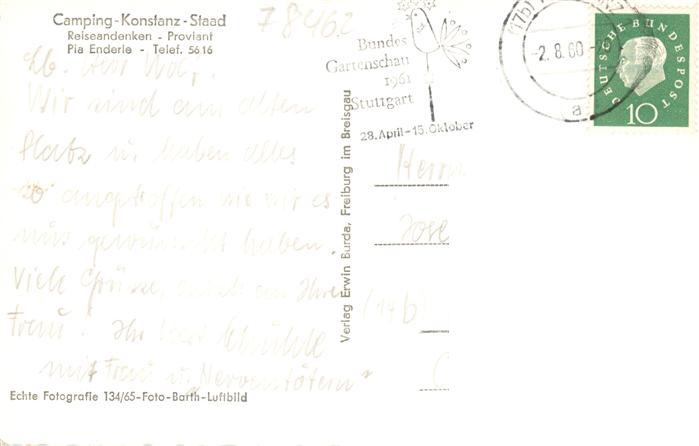 Camping-Konstanz-Staad
Reiseandenken - Proviant
Pia Enderle - Telef. 5616
78462
Lb. Herr Wolf,
Wir sind am alten
Platz u. haben alles
so angetroffen wie wir es
uns gewünscht haben.
Viele Grüsse, auch an Ihre
Frau! Ihr
mit Frau u. "Nerventötern"
Echte Fotografie 134/65-Foto-Barth-Luftbild
Verlag Erwin Burda, Freiburg im Breisgau
Bundes
Gartenschau
1961
Stuttgart
28. April-15. Oktober
(17b)
-2.8.60
a
DEUTSCHE BUNDESPOST
10
Herrn
Jose
(14b)